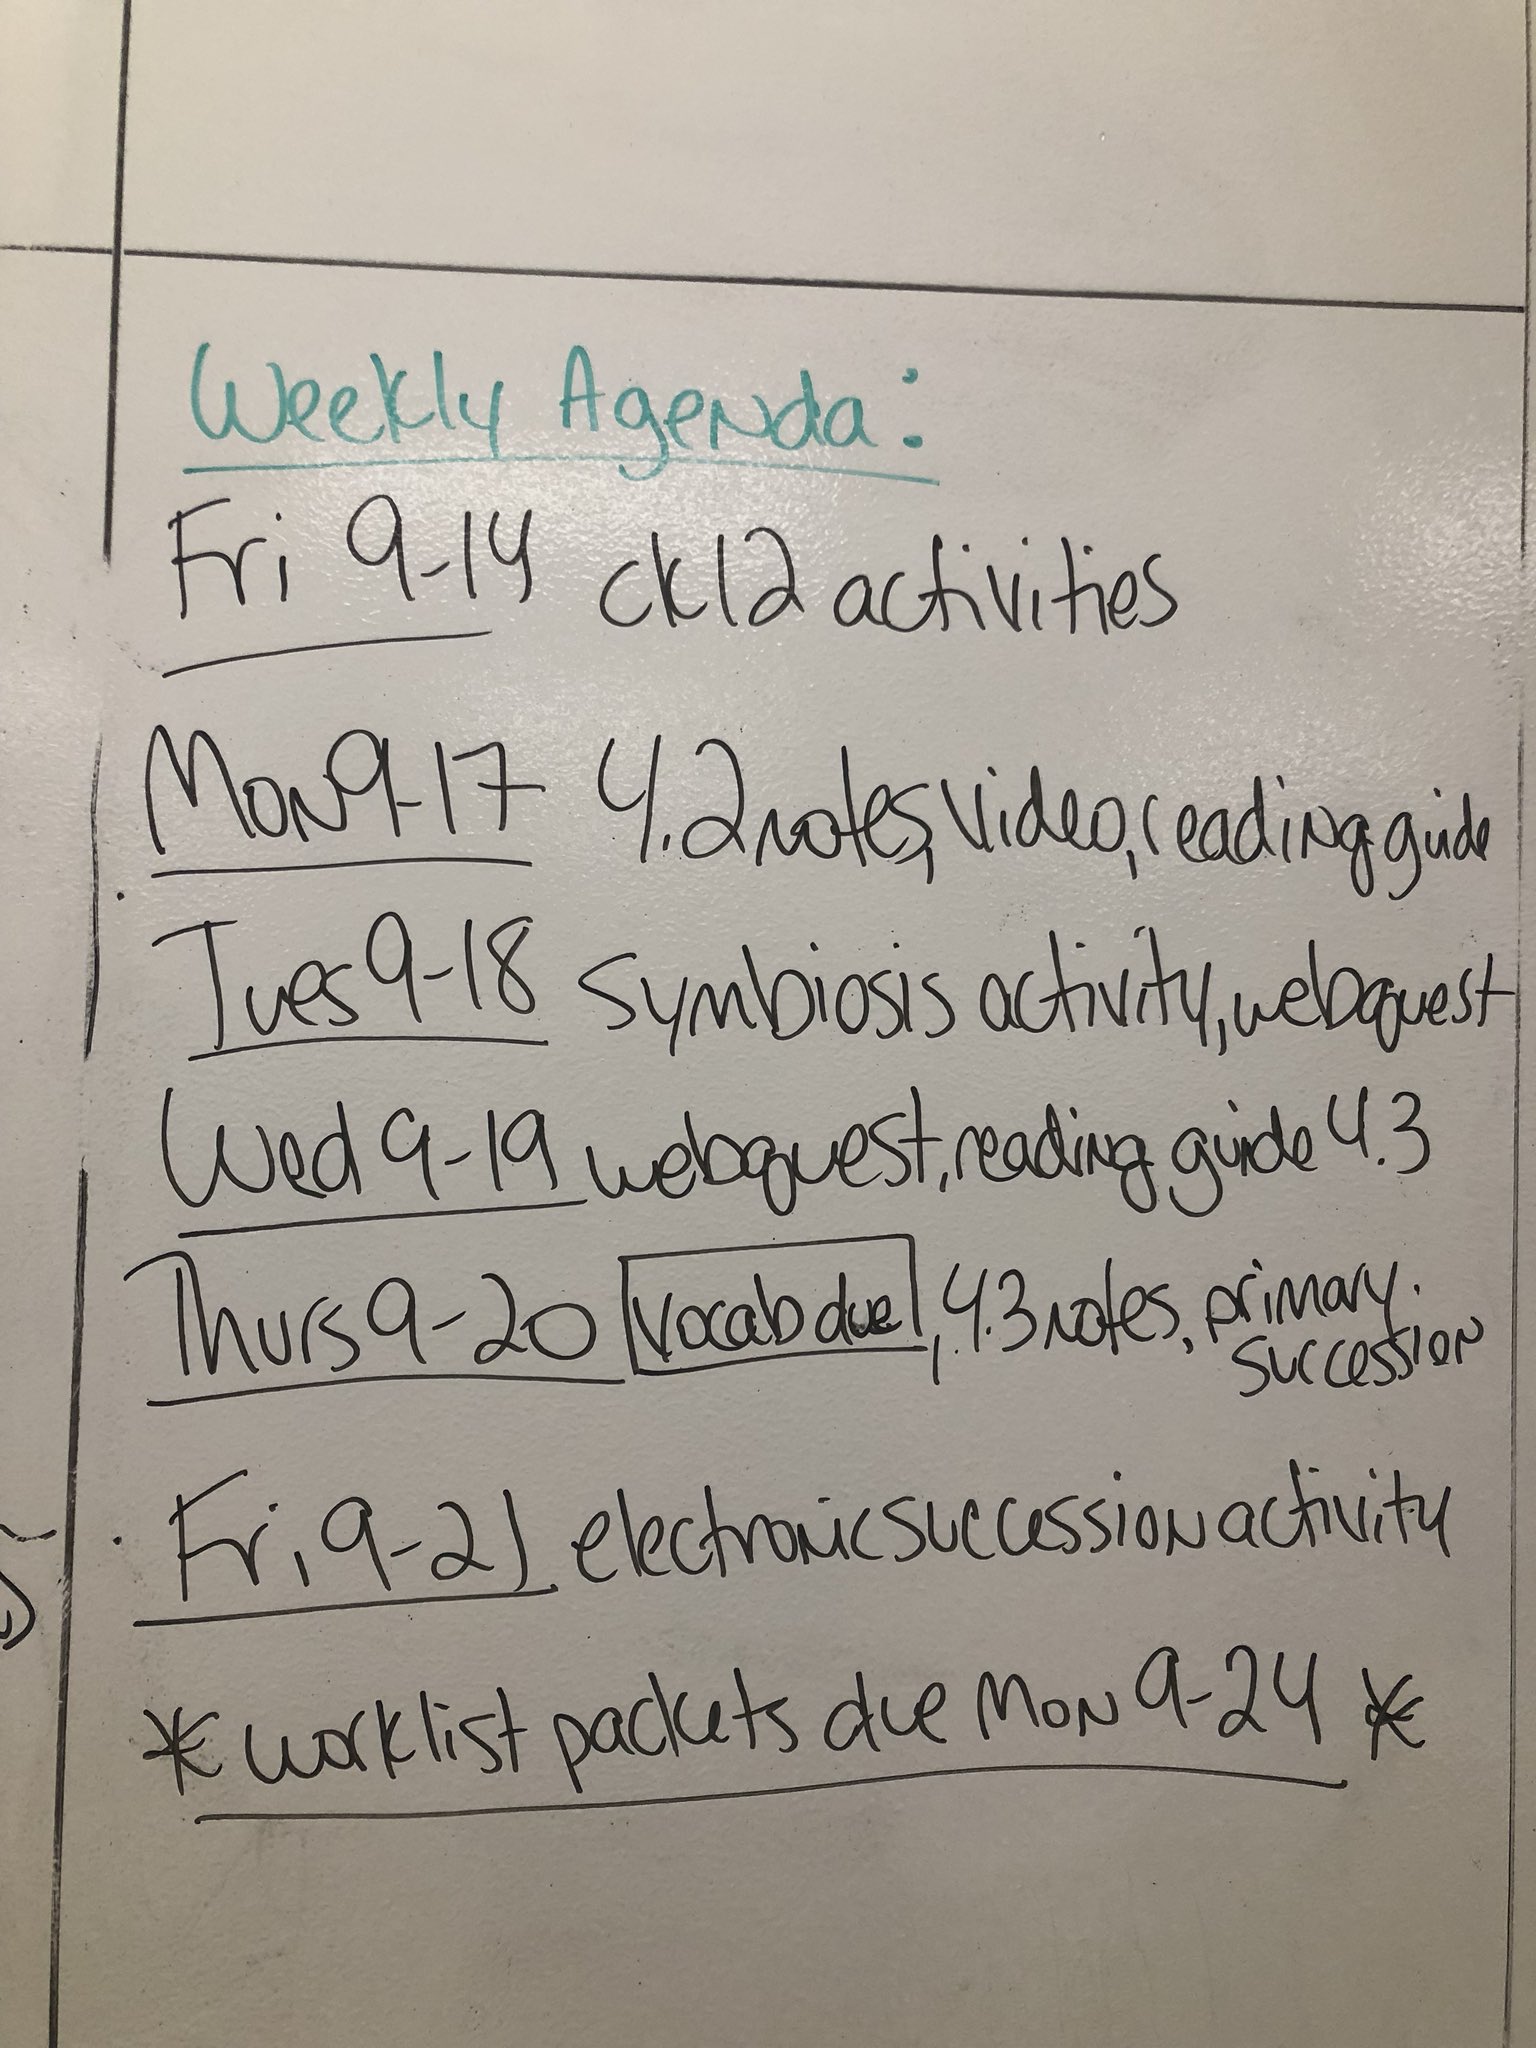 Weekly Agenda:
Fri 9-14 ck12 activities
Mon 9-17 4.2 notes, video, reading guide
Tues 9-18 symbiosis activity, webquest
Wed 9-19 webquest, reading guide 4.3
Thurs 9-20 vocab due, 4.3 notes, primary
succession
Fri, 9-21 electronic succession activity
* worklist packets due Mon 9-24 *